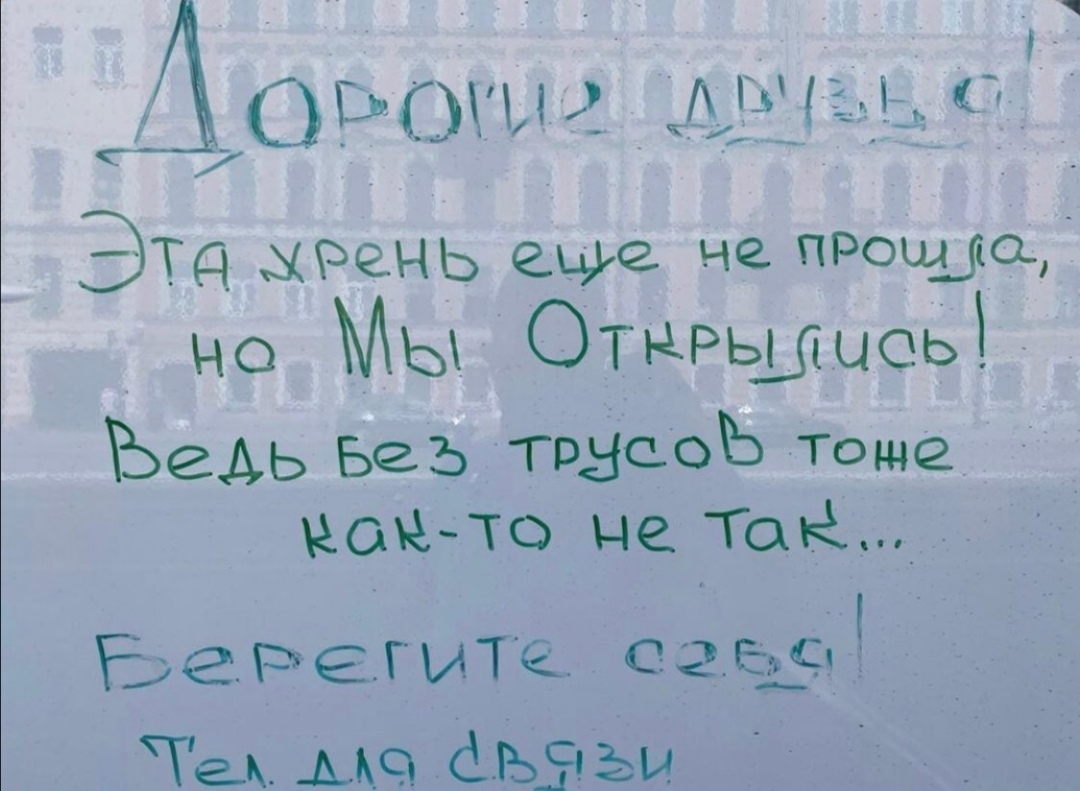 Дорогие друзья!
Эта хрень еще не прошла,
но Мы Открылись!
Ведь без трусов тоже
как-то не так...
Берегите себя!
Тел. для связи